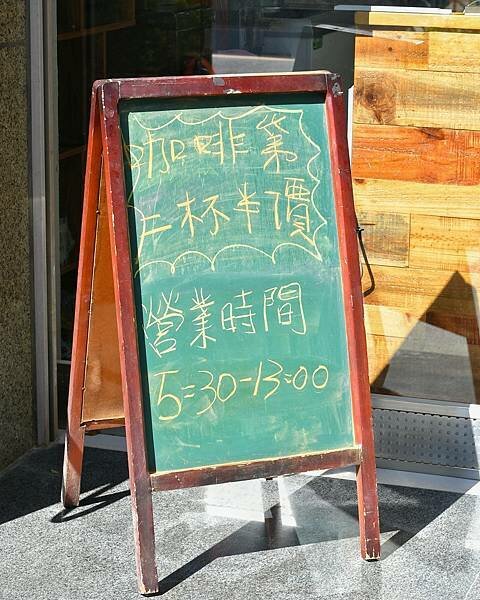 咖啡第
二杯半價
營業時間
5:30-13:00